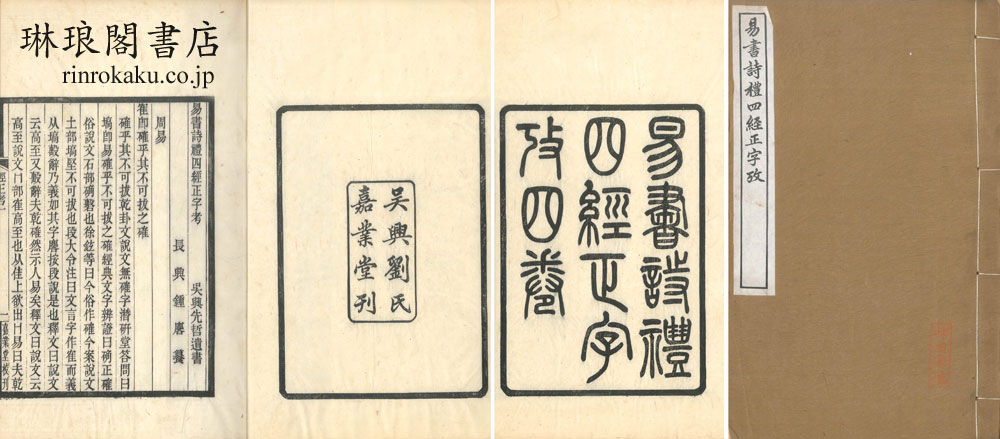 琳琅閣書店
rinrokaku.co.jp
易書詩禮四經正字攷
易書詩禮
四經正字
攷四卷
吳興劉氏
嘉業堂刊
易書詩禮四經正字考 吳興先哲遺書
長興鍾麐
周易
隺卽確乎其不可拔之確
確乎其不可拔乾卦文說文無確字潛硏堂答問曰
塙卽易確乎不可拔之確經典文字辨證曰碻正確
俗說文石部磬也徐鉉等曰今俗作確今案說文
土部塙堅不可拔也段大令注曰文言字作隺而義
从塙辭乃義如其字麐按段說是也釋文曰說文
云高至又毄辭夫乾確然示人易矣釋文曰說文云
高至說文冂部隺高至也从隹上欲出冂易曰夫乾
嘉業堂校刊